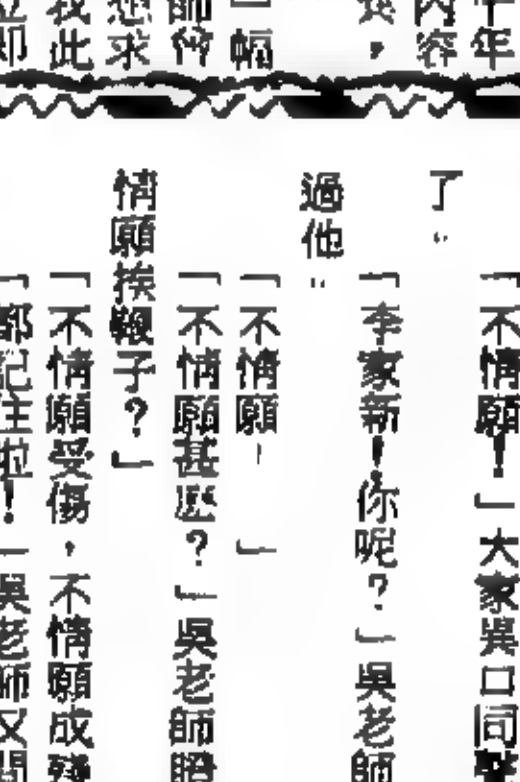 年
內容
，
一幅
師
想求
我此
立即
「不情願！」大家異口同聲
了。
「李家新！你呢？」吳老師
過他。
「不情願！」
「不情願甚麼？」吳老師瞪
情願挨鞭子？」
「不情願受傷，不情願成殘
「都記住啦！」吳老師又問